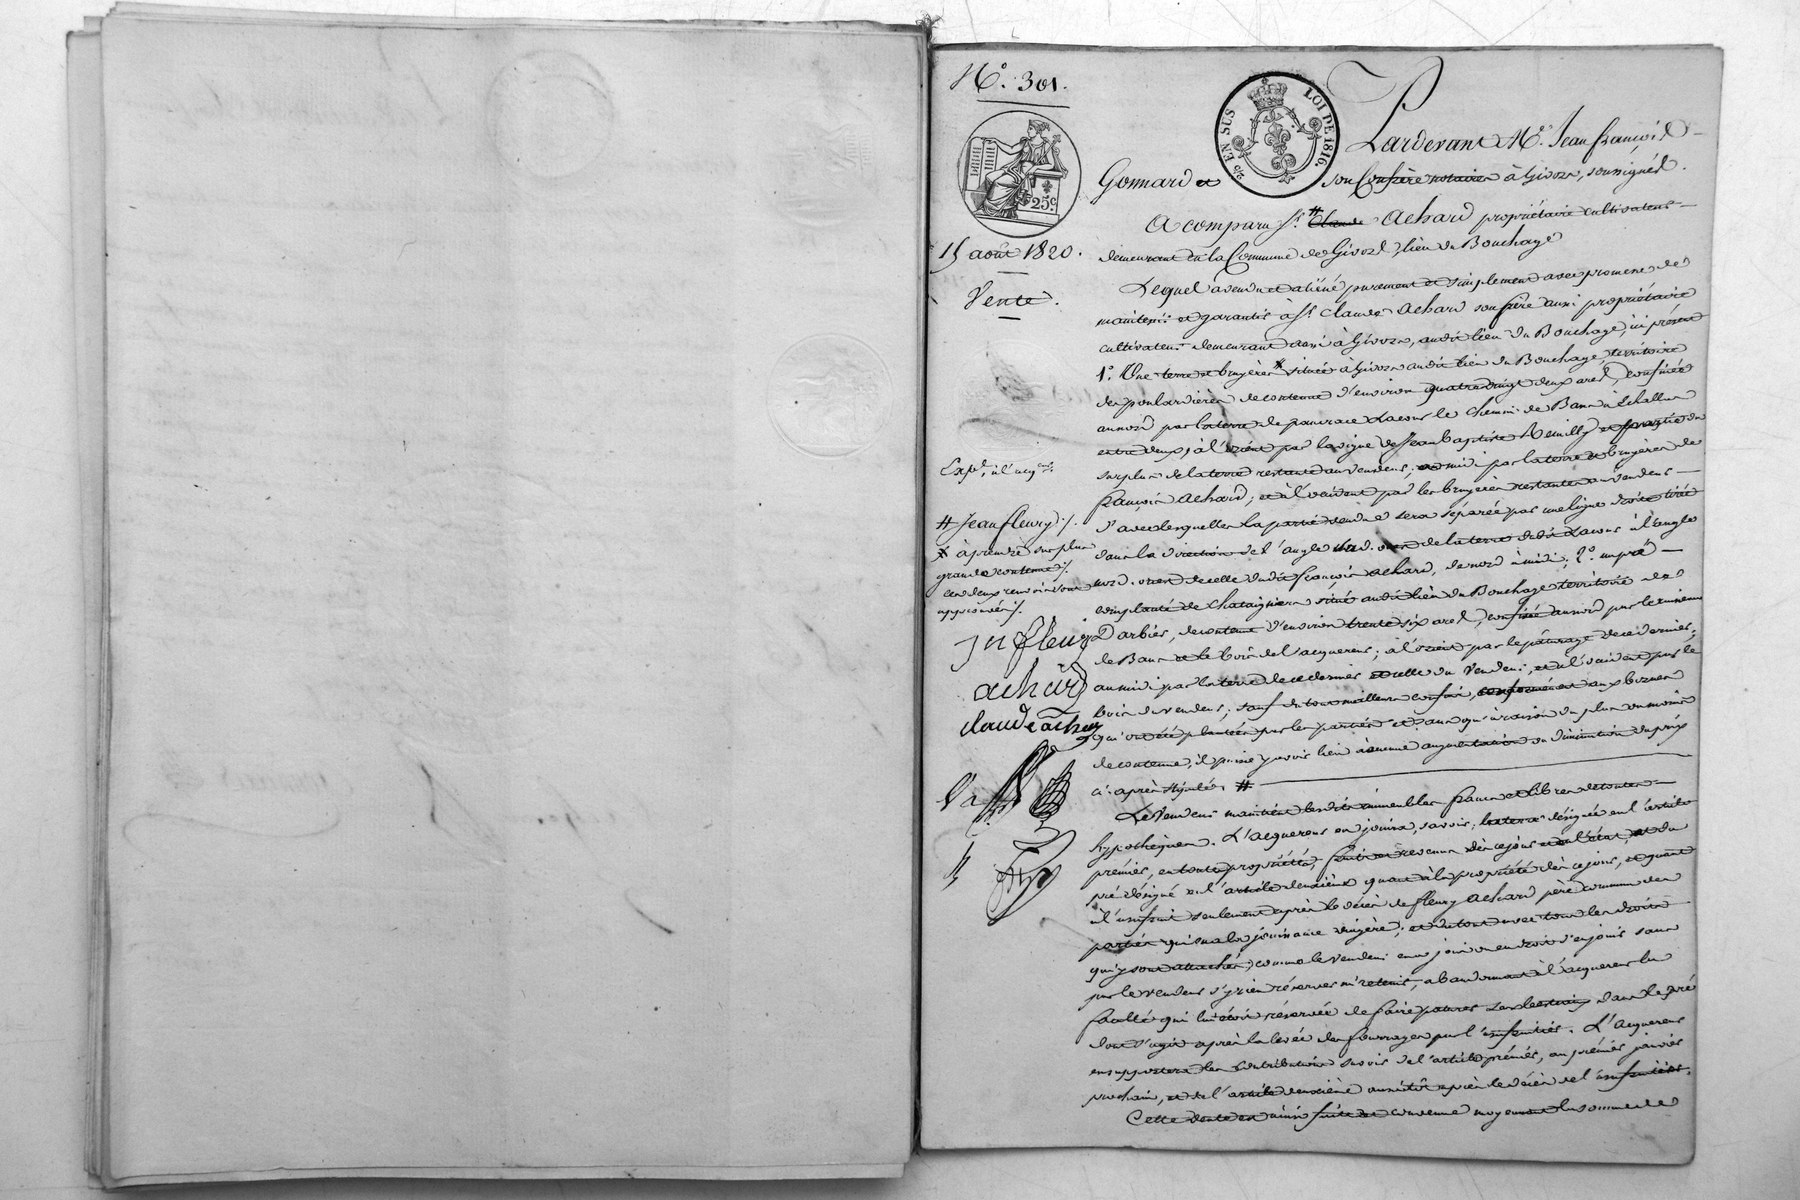 N.° 301.
EN SUS LOI DE 1816.
25c.
15 août 1820.
Vente.
Pardevant M.e Jean françois
Gonnard et son Confrère notaires à Givors, soussignés.
A comparu Sr. # Claude Achard propriétaire cultivateur
demeurant en la Commune de Givors, lieu du Bouchage
Lequel a vendu et aliéné purement et simplement avec promesse de
maintenir et garantir à Sr. Claude Achard son frère aussi propriétaire
cultivateur demeurant aussi à Givors, audit lieu du Bouchage, ici présent
1.° Une terre et bruyères X située à Givors audit lieu du Bouchage, territoire
de poulardières de contenue d'environ quatre vingt deux ares, confinée
au nord par la terre de pancrace Lacour le chemin de Bans à Echallas
entre deux; à l'orient par la vigne de Jean Baptiste Remilly et partie du
surplus de la terre restante au vendeur; au midi par la terre et bruyères de
françois Achard; et à l'occident par les bruyères restantes au vendeur
d'avec lesquelles la partie vendue sera séparée par une ligne droite tirée
dans la direction de l'angle sud ouest de la terre dudit Lacour à l'angle
nord ouest de celle dudit françois Achard, de nord à midi; 2.° un pré
complanté de Chataigniers situé audit lieu du Bouchage territoire de
Darbier, de contenue d'environ trente six ares, confiné au nord par le ruisseau
de Bans et le bois de l'acquereur; à l'orient par le pâturage de ce dernier;
au midi par la terre de ce dernier et celle du Vendeur, et à l'occident par le
bois du vendeur; sauf de tous meilleurs confins, conformément aux bornes
qui ont été plantées par les parties et sans qu'à raison du plus ou moins
de contenue, il puisse y avoir lieu à aucune augmentation ou diminution du prix
ci-après stipulé. #
Le Vendeur maintient lesdits immeubles francs et libres de toutes
hypothèques. L'acquereur en jouira, savoir: la terre désignée en l'article
premier, en toute propriété, fruits et revenus dès ce jour et en l'état, et du
pré désigné en l'article deuxième quant à la propriété dès ce jour, et quant
à l'usufruit seulement après le décès de fleury Achard père commun des
parties qui en a la jouissance viagère; et du tout avec tous les droits
qui y sont attachés, comme le Vendeur en a joui ou eu droit d'en jouir sans
par le vendeur s'y rien réserver ni retenir, abandonnant à l'acquereur la
faculté qui lui était réservée de faire paturer dans le pré
dont s'agit après la levée des fourrages par l'usufruitier. L'acquereur
en supportera les contributions savoir de l'article premier, au premier janvier
prochain, et de l'article deuxième aussitôt après le décès de l'usufruitier.
Cette vente est ainsi faite et convenue moyennant la somme de
Exp.on à l'acq.r
# Jean fleury ./.
X à prendre sur plus
grande contenue ./.
Les deux renvois sont
approuvés ./.
jn fleury
achard
claude achard